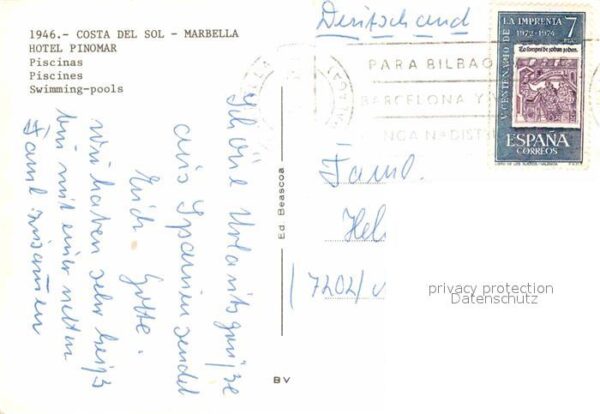 1946.- COSTA DEL SOL - MARBELLA
HOTEL PINOMAR
Piscinas
Piscines
Swimming-pools
Schöne Urlaubsgrüße
aus Spanien sendet
Euch Gotte.
wir haben sehr heiß
bin mit einer netten
Famil zusamen
Ed. Beascoa
BV
Deutschland
PARA BILBAO
BARCELONA Y
V CENTENARIO DE LA IMPRENTA
1972-1974
7
PTAS
ESPAÑA
CORREOS
Famil.
Hel
7202/
privacy protection
Datenschutz